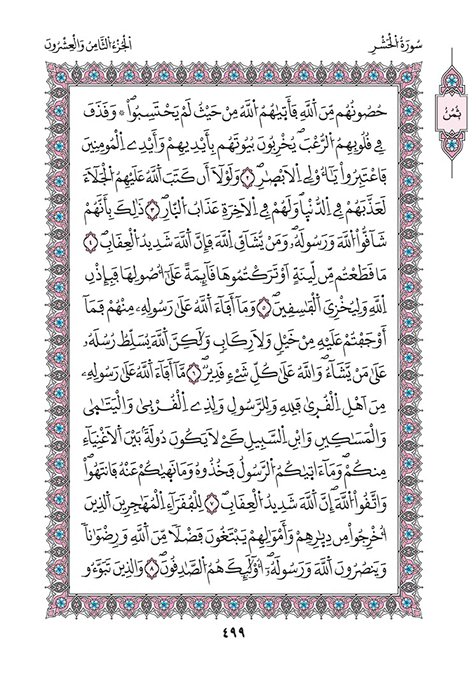 سُورَةُ الْحَشْرِ
الجُزءُ الثَّامِنُ وَالْعِشْرُونَ
ثُمُنٌ
حُصُونُهُم مِّنَ اَ۬للَّهِ فَأَت۪يٰهُمُ اُ۬للَّهُ مِنْ حَيْثُ لَمْ يَحْتَسِبُواْۖ ۞ وَقَذَفَ
فِے قُلُوبِهِمُ اُ۬لرُّعْبَۖ يُخْرِبُونَ بُيُوتَهُم بِأَيْدِيهِمْ وَأَيْدِے اِ۬لْمُومِنِينَ
فَاعْتَبِرُواْ يَٰٓأُوْلِے اِ۬لَابْصٰ۪رِۖ ٢ وَلَوْلَآ أَن كَتَبَ اَ۬للَّهُ عَلَيْهِمُ اُ۬لْجَلَآءَ
لَعَذَّبَهُمْ فِے اِ۬لدُّنْي۪اۖ وَلَهُمْ فِے اِ۬لَاخِرَةِ عَذَابُ اُ۬لنّ۪ارِۖ ٣ ذَٰلِكَ بِأَنَّهُمْ
شَآقُّواْ اُ۬للَّهَ وَرَسُولَهُۥۖ وَمَنْ يُّشَآقِّ اِ۬للَّهَ فَإِنَّ اَ۬للَّهَ شَدِيدُ اُ۬لْعِقَابِۖ ٤
مَا قَطَعْتُم مِّن لِّينَةٍ اَوْ تَرَكْتُمُوهَا قَآئِمَةً عَلَىٰٓ أُصُولِهَا فَبِإِذْنِ
اِ۬للَّهِ وَلِيُخْزِيَ اَ۬لْفَٰسِقِينَۖ ٥ وَمَآ أَفَآءَ اَ۬للَّهُ عَلَىٰ رَسُولِهِۦ مِنْهُمْ فَمَآ
أَوْجَفْتُمْ عَلَيْهِ مِنْ خَيْلٖ وَلَا رِكَابٖ وَلَٰكِنَّ اَ۬للَّهَ يُسَلِّطُ رُسُلَهُۥ
عَلَىٰ مَنْ يَّشَآءُۖ وَاللَّهُ عَلَىٰ كُلِّ شَےْءٖ قَدِيرٞۖ ٦ مَّآ أَفَآءَ اَ۬للَّهُ عَلَىٰ رَسُولِهِۦ
مِنَ اَهْلِ اِ۬لْقُر۪ىٰ فَلِلهِ وَلِلرَّسُولِ وَلِذِے اِ۬لْقُرْب۪ىٰ وَالْيَتَٰم۪ىٰ
وَالْمَسَٰكِينِ وَابْنِ اِ۬لسَّبِيلِ كَےْ لَا يَكُونَ دُولَةَۢ بَيْنَ اَ۬لَاغْنِيَآءِ
مِنكُمْۖ وَمَآ ءَات۪يٰكُمُ اُ۬لرَّسُولُ فَخُذُوهُ وَمَا نَه۪يٰكُمْ عَنْهُ فَانتَهُواْۖ
وَاتَّقُواْ اُ۬للَّهَۖ إِنَّ اَ۬للَّهَ شَدِيدُ اُ۬لْعِقَابِۖ ٧ لِلْفُقَرَآءِ اِ۬لْمُهَٰجِرِينَ اَ۬لذِينَ
أُخْرِجُواْ مِن دِيٰ۪رِهِمْ وَأَمْوَٰلِهِمْ يَبْتَغُونَ فَضْلاٗ مِّنَ اَ۬للَّهِ وَرِضْوَٰناٗ
وَيَنصُرُونَ اَ۬للَّهَ وَرَسُولَهُۥٓۖ أُوْلَٰٓئِكَ هُمُ اُ۬لصَّٰدِقُونَۖ ٨ وَالذِينَ تَبَوَّءُو
٤٩٩